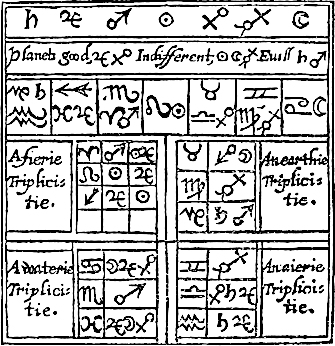 ♄ ♃ ♂ ☉ ♀ ☿ ☾
Planets good, ♃ ♀ Indifferent, ☉ ☾ ☿ Euill ♄ ♂
♑ ♄ ♐ ♏ ♌ ☉ ♉ ♊ ♋ ☾
♒ ♓ ♃ ♈ ♂ ♎ ♀ ♍ ☿
A fierie
Triplici-
tie.
♈ ♂ ☉ ♃
♌ ☉ ♃
♐ ♃ ☉
♉ ♀ ☽
♍ ☿
♑ ♄ ♂
An earthie
Triplici-
tie.
A waterie
Triplici-
tie.
♋ ☽ ♃ ♀
♏ ♂
♓ ♃ ☽ ♀
♊ ☿
♎ ♀ ♄ ♃
♒ ♄ ♃
An aierie
Triplici-
tie.